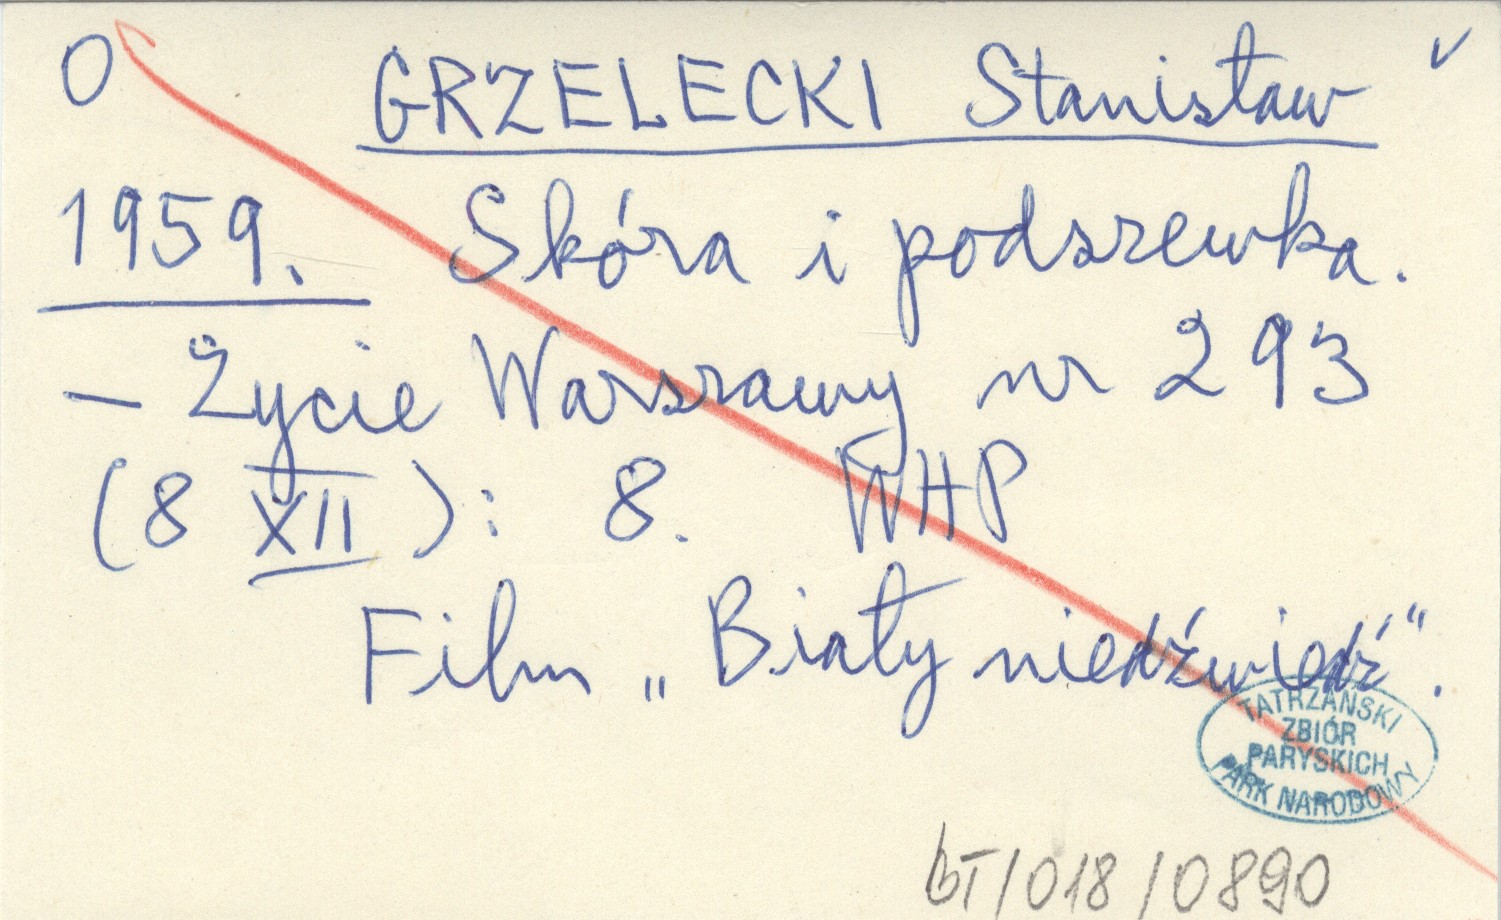 O GRZELECKI Stanisław v
1959. Skóra i podszewka.
— Życie Warszawy nr 293
(8 XII): 8. WHP
Film „Biały niedźwiedź".
TATRZAŃSKI
ZBIÓR
PARYSKICH
PARK NARODOWY
bT/018/0890